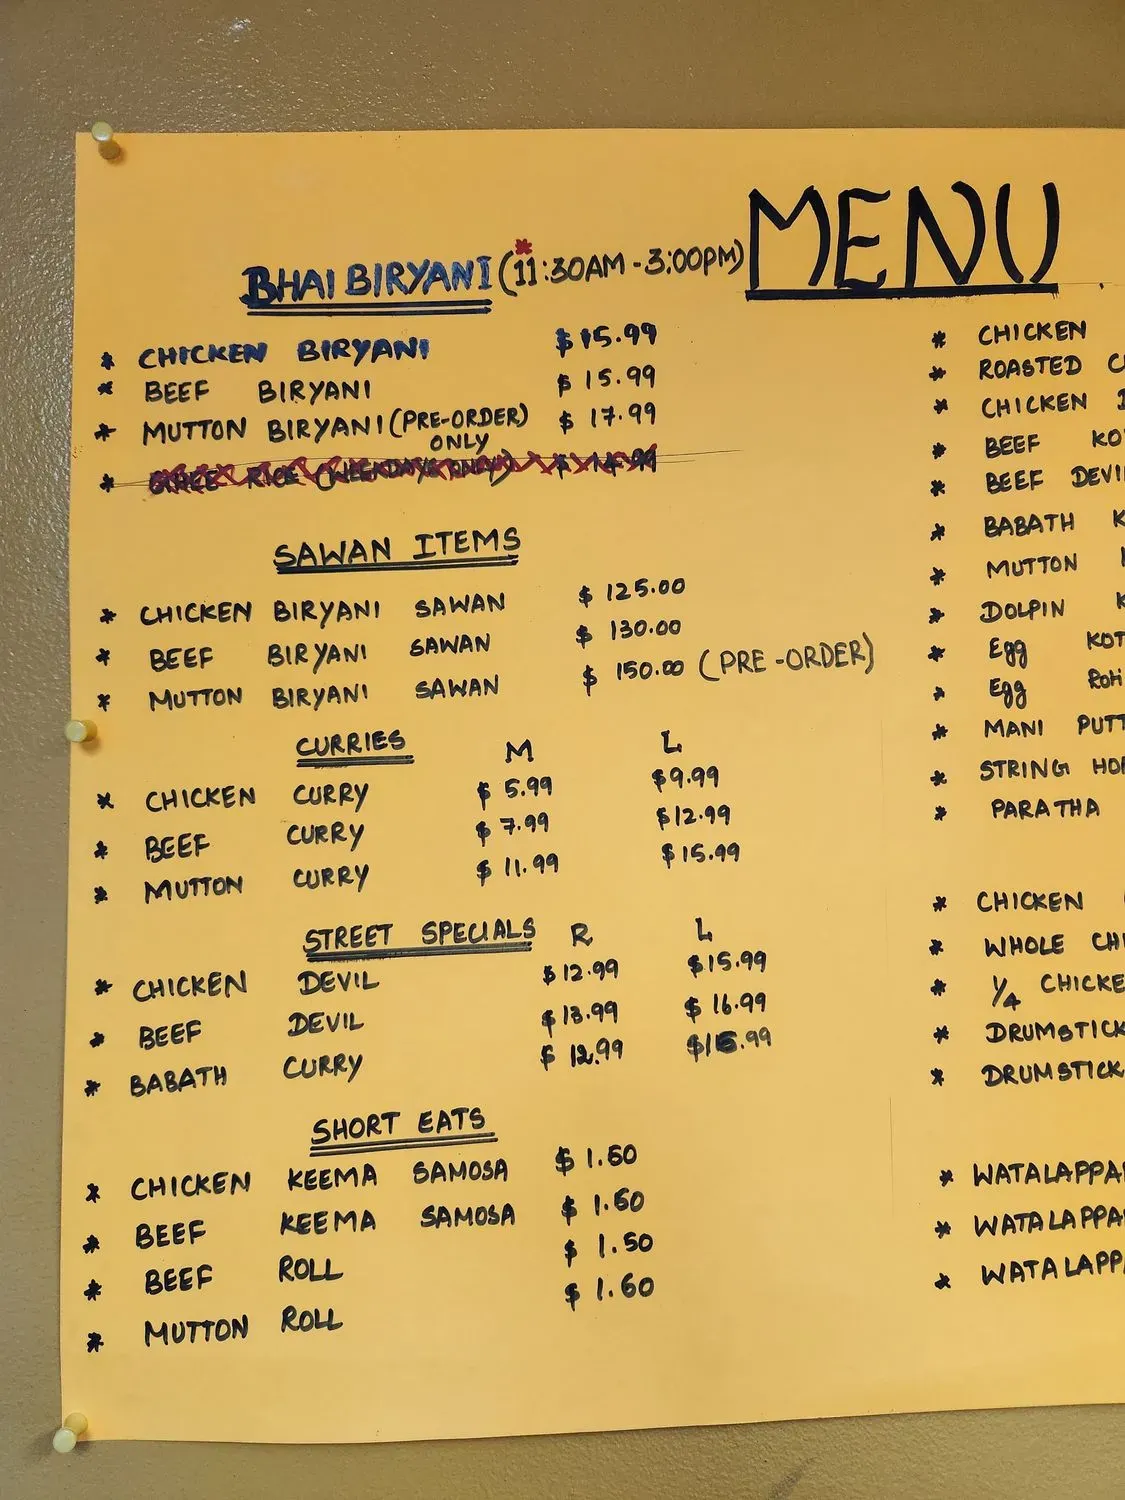 MENU
BHAI BIRYANI (11:30AM - 3:00PM)
* CHICKEN BIRYANI $15.99
* BEEF BIRYANI $15.99
* MUTTON BIRYANI (PRE-ORDER) $17.99
ONLY
* GHEE RICE (WEEKDAYS ONLY) $14.99
SAWAN ITEMS
* CHICKEN BIRYANI SAWAN $125.00
* BEEF BIRYANI SAWAN $130.00
* MUTTON BIRYANI SAWAN $150.00 (PRE-ORDER)
CURRIES M L
* CHICKEN CURRY $5.99 $9.99
* BEEF CURRY $7.99 $12.99
* MUTTON CURRY $11.99 $15.99
STREET SPECIALS R L
* CHICKEN DEVIL $12.99 $15.99
* BEEF DEVIL $13.99 $16.99
* BABATH CURRY $12.99
SHORT EATS
* CHICKEN KEEMA SAMOSA
* BEEF KEEMA SAMOSA
* BEEF ROLL $1.50
* MUTTON ROLL
* CHICKEN
* ROASTED C
* CHICKEN
* BEEF KO
* BEEF DEVI
* BABATH K
* MUTTON
* DOLPIN K
* Egg KOT
* Egg Roti
* MANI PUTT
* STRING HO
* PARATHA
* CHICKEN
* WHOLE CHI
* 1/4 CHICKE
* DRUMSTICK
* DRUMSTICK
* WATALAPPA
* WATALAPPA
* WATALAPP